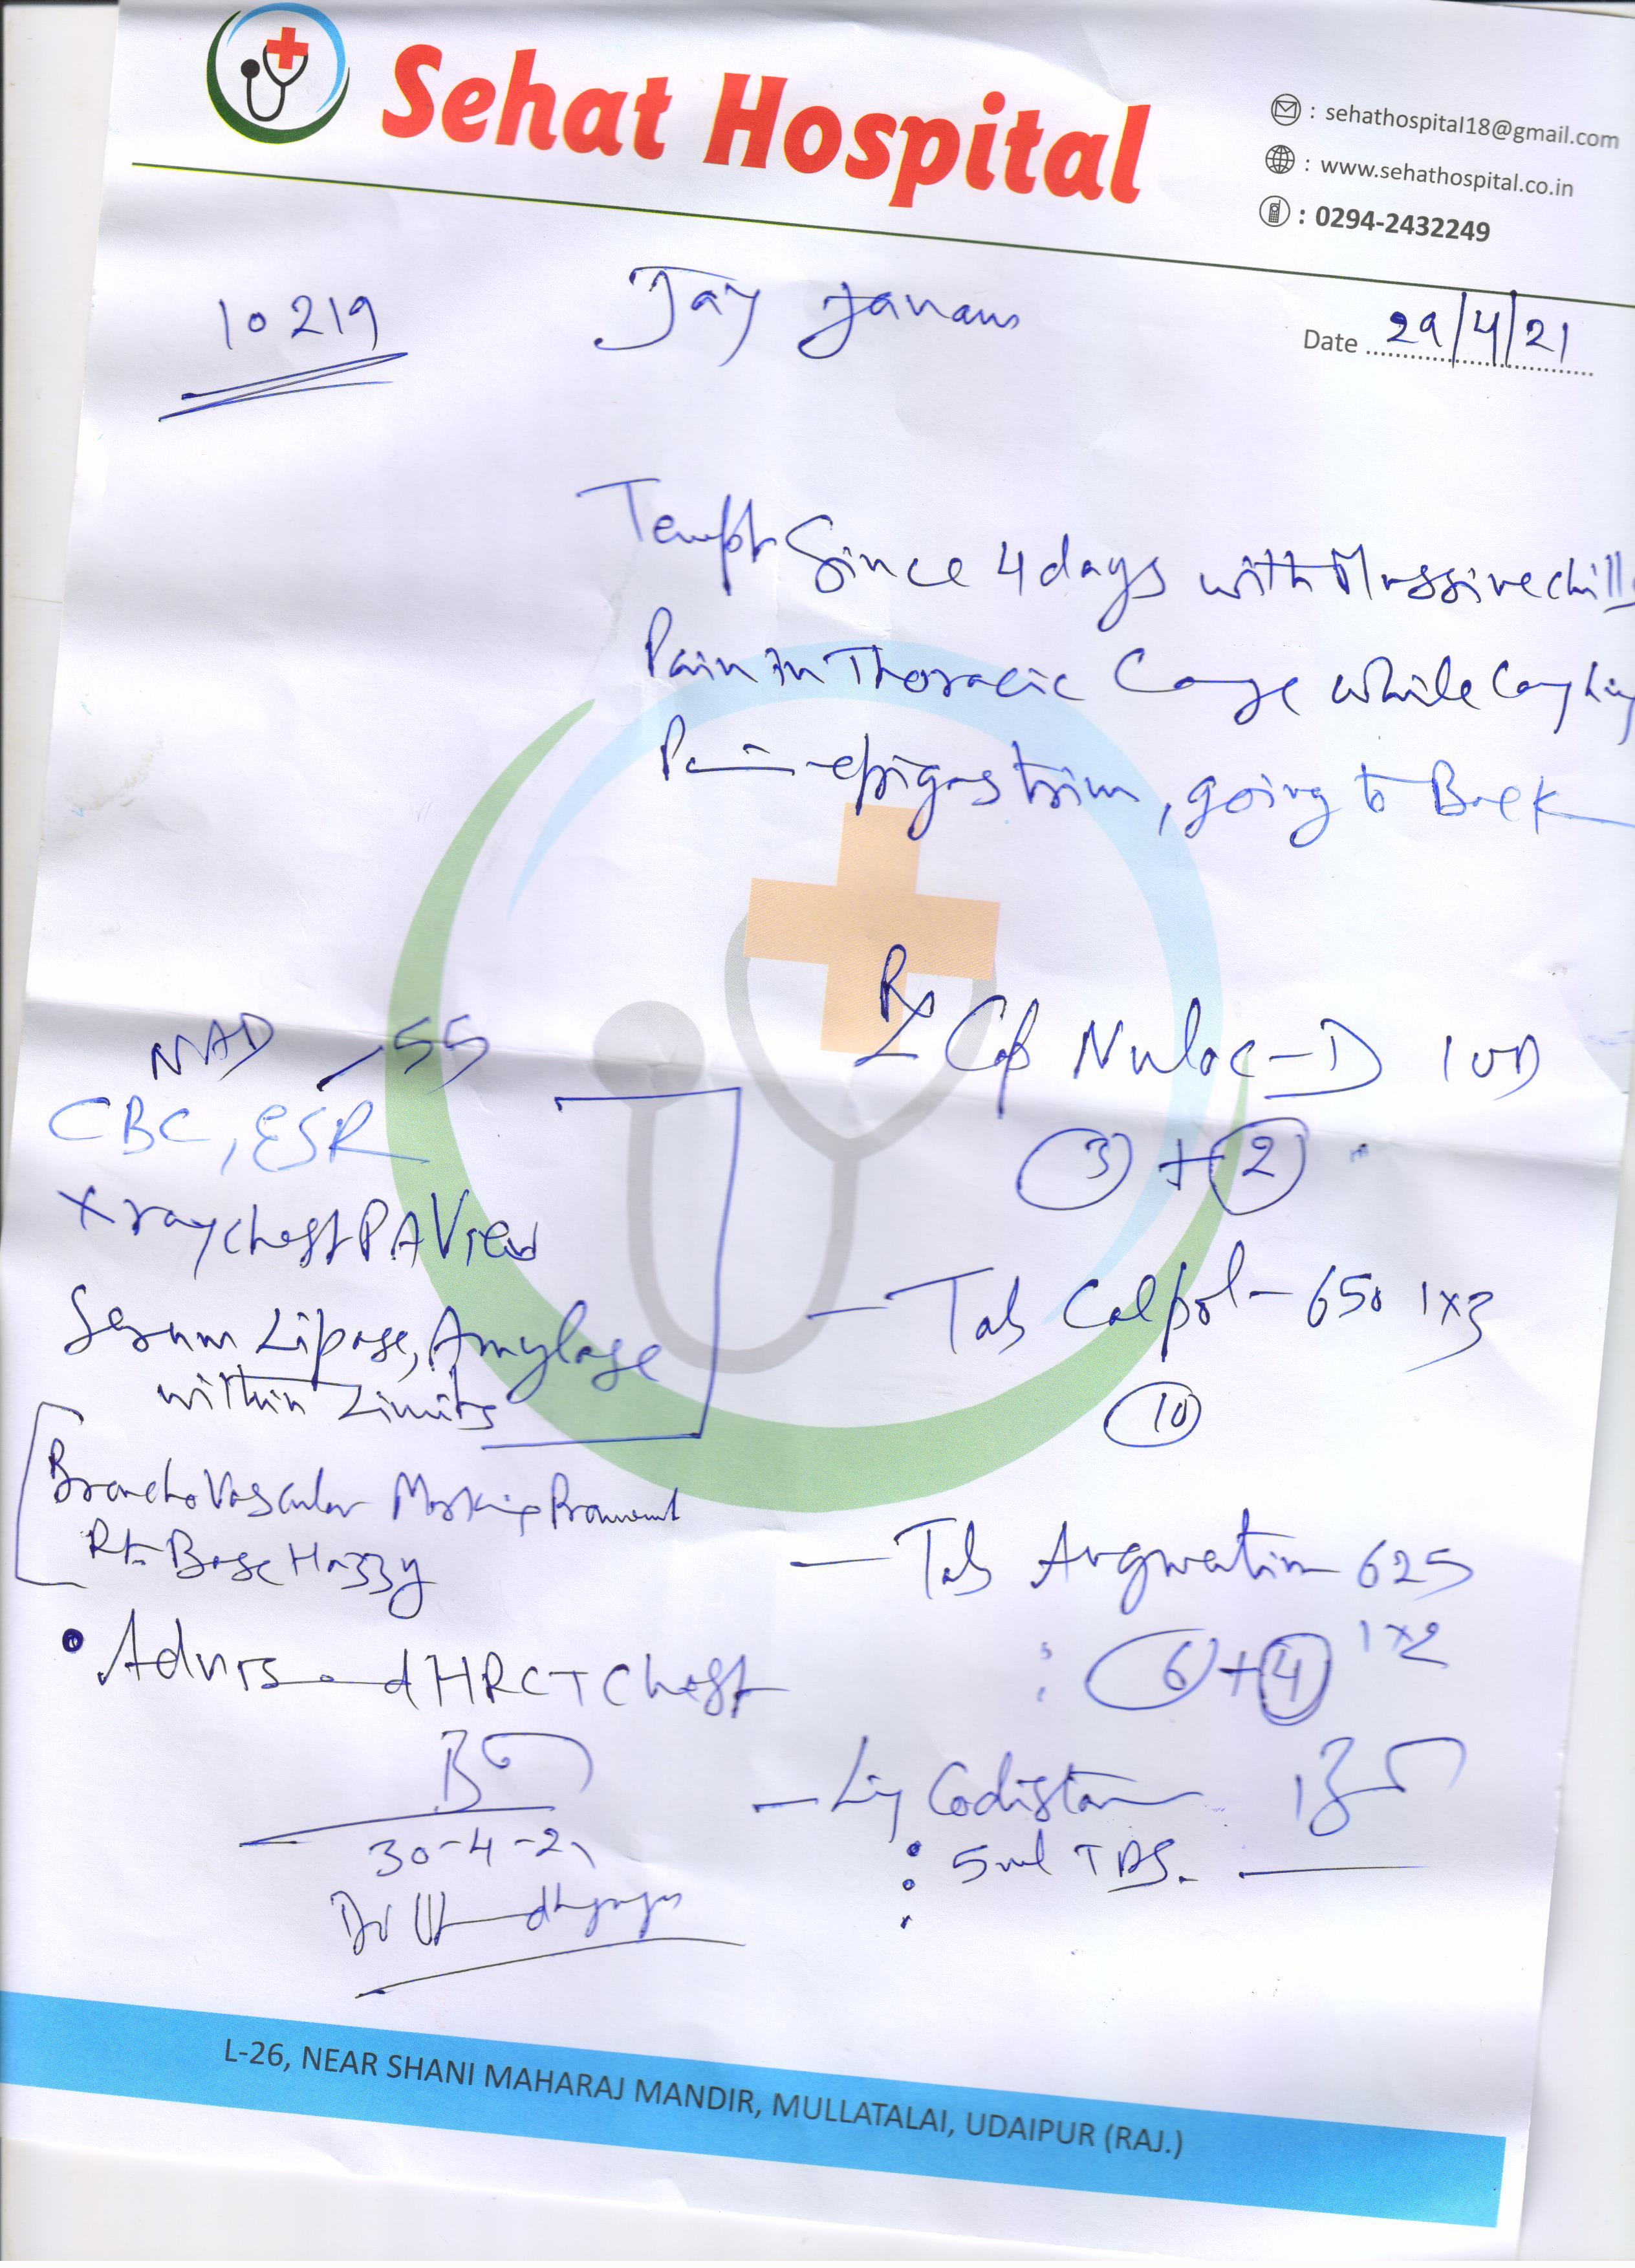 Sehat Hospital
: sehathospital18@gmail.com
: www.sehathospital.co.in
: 0294-2432249
10219
Jay
Date 29/4/21
Since 4 days with Massive chills
Pain in Thoracic Cage while
epigastrium, going to Back
Rx
Cap Nuloc-D 1 OD
3 + 2
NAD 55
CBC, ESR
X ray chest PA View
Serum Lipase, Amylase
within Limits
Tab Calpol-650 1x3
10
Broncho Vascular
Rt Base Hazzy
Tab 625
6 + 4 1x2
Advised HRCT Chest
30-4-21
5ml TDS.
Dr
L-26, NEAR SHANI MAHARAJ MANDIR, MULLATALAI, UDAIPUR (RAJ.)